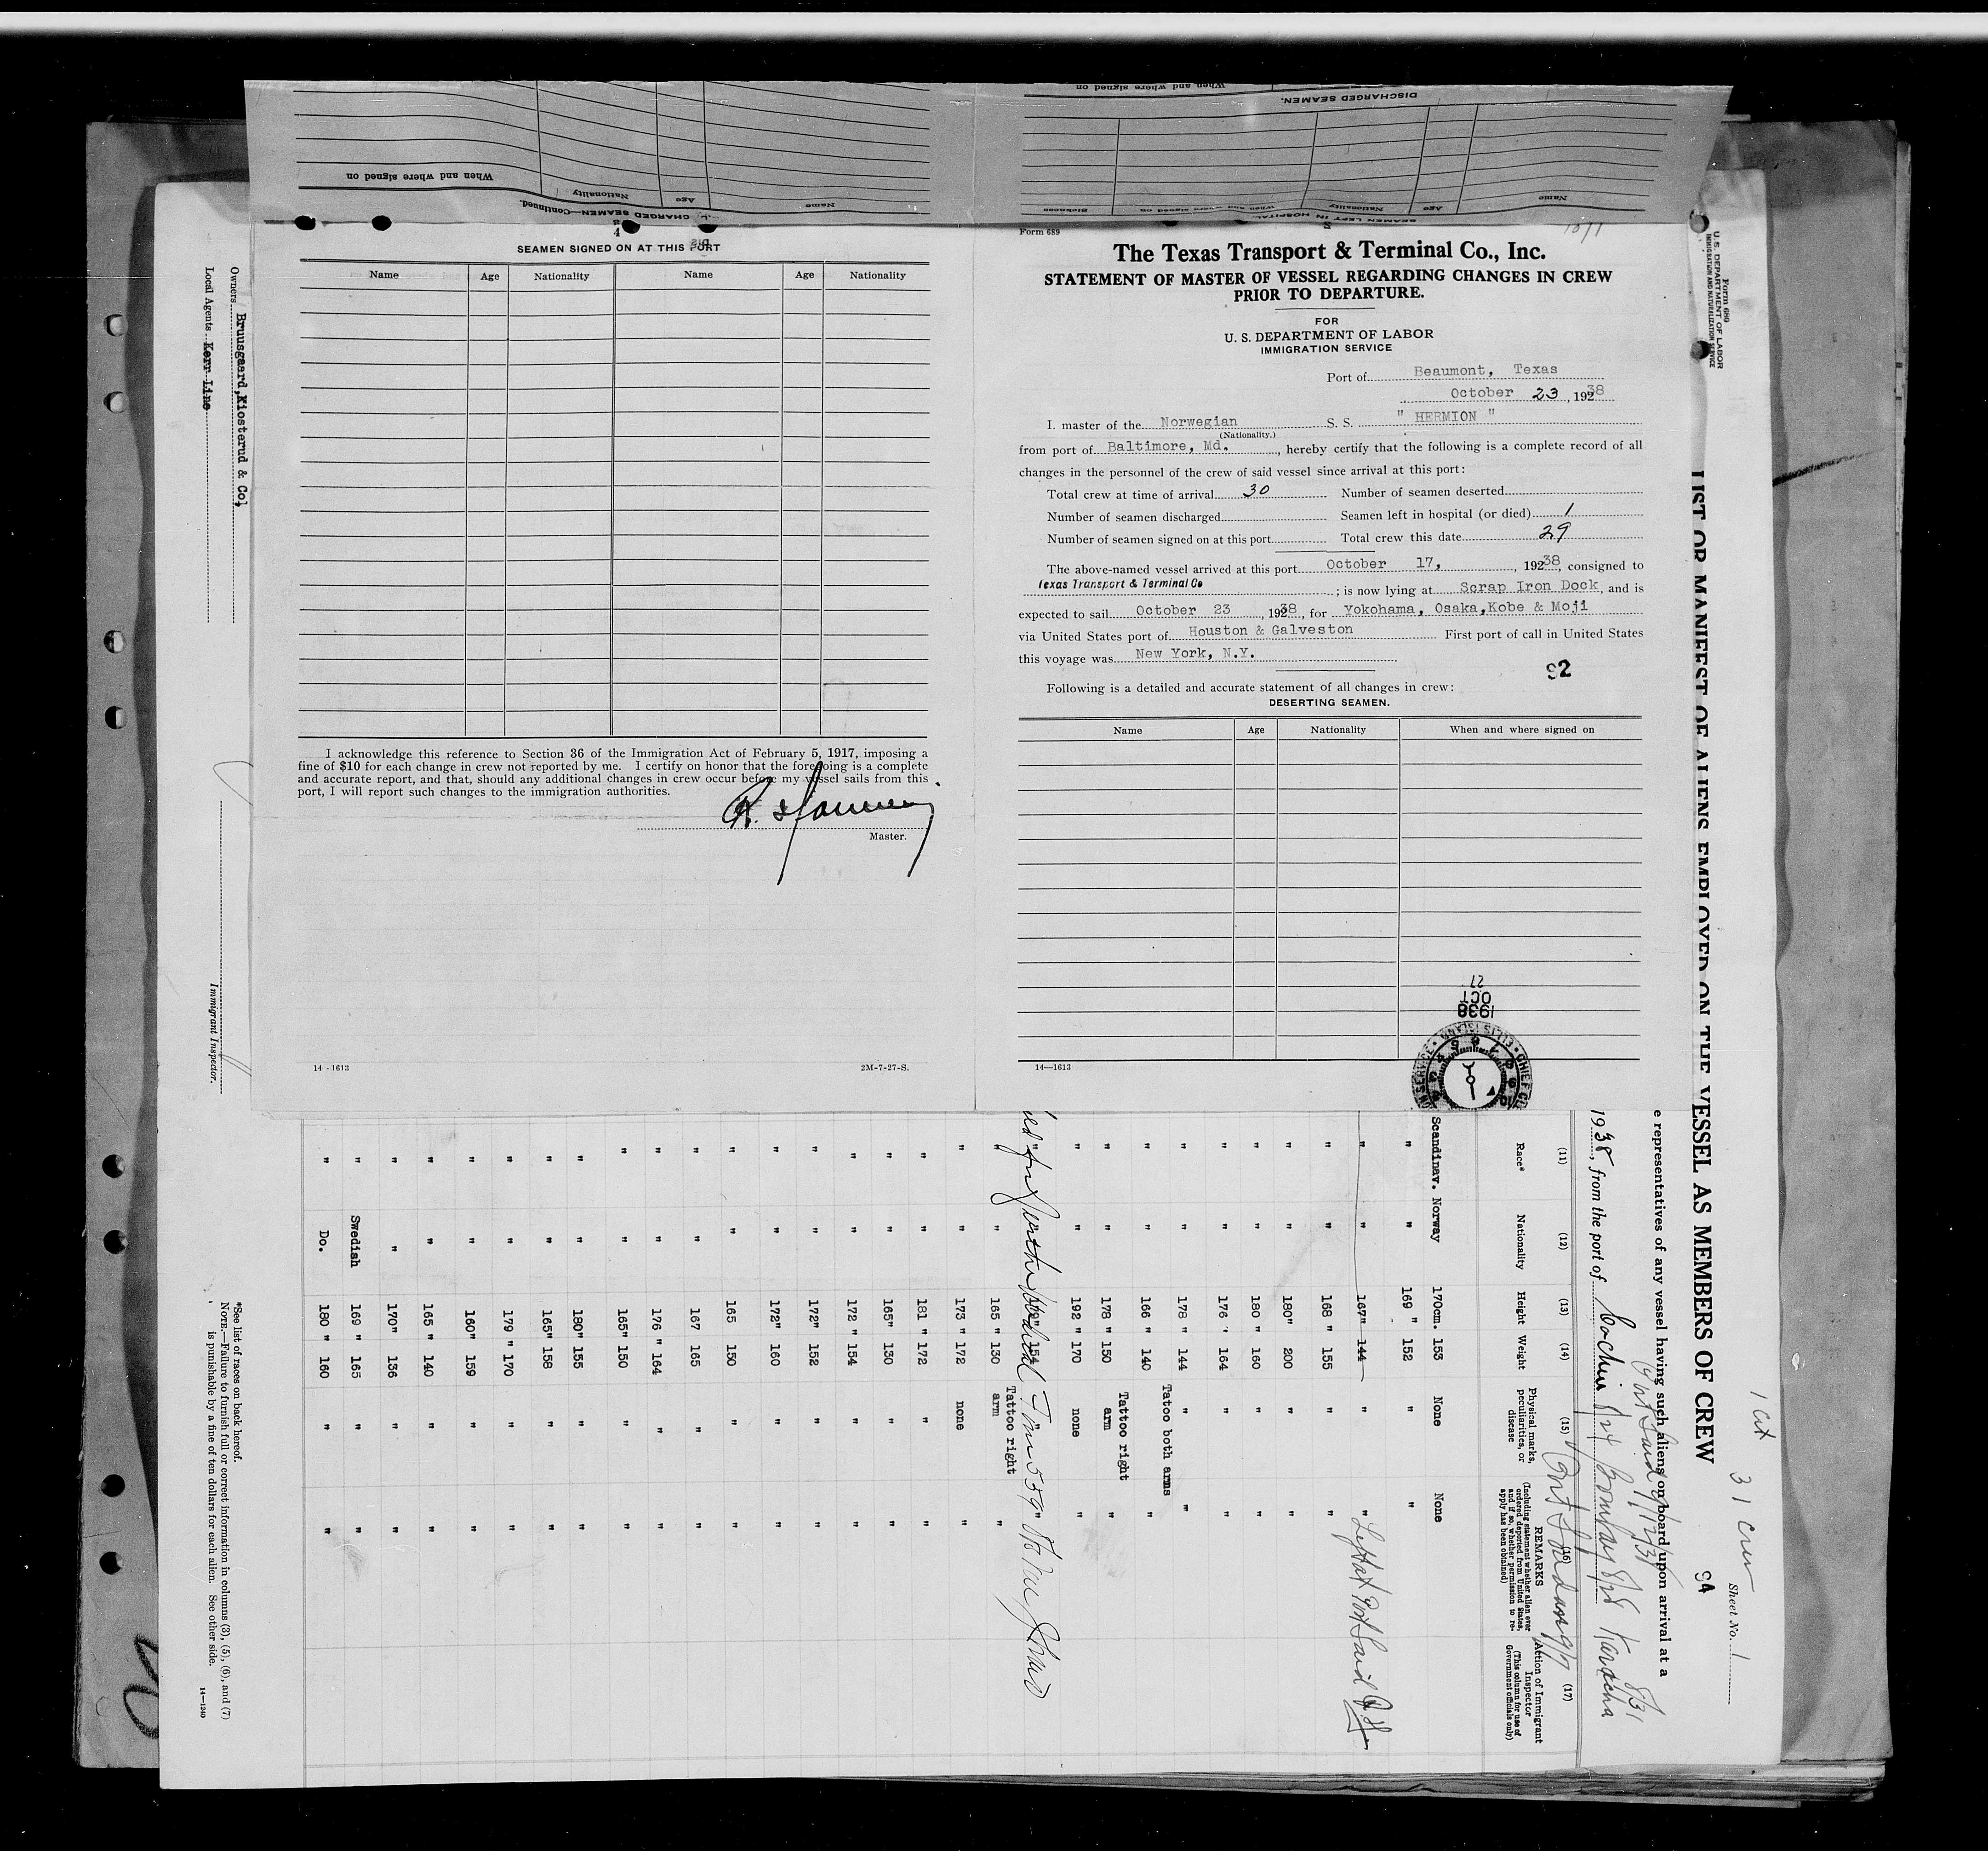 When and where signed on
Nationality
Age
Name
CHARGED SEAMEN—Continued.
When and where signed on
DISCHARGED SEAMEN.
Sickness
When and where signed on
Nationality
Age
Name
SEAMEN LEFT IN HOSPITAL
4
SEAMEN SIGNED ON AT THIS PORT
Name Age Nationality Name Age Nationality
I acknowledge this reference to Section 36 of the Immigration Act of February 5, 1917, imposing a
fine of $10 for each change in crew not reported by me. I certify on honor that the foregoing is a complete
and accurate report, and that, should any additional changes in crew occur before my vessel sails from this
port, I will report such changes to the immigration authorities.
Master.
14-1613 2M-7-27-S.
Form 689
The Texas Transport & Terminal Co., Inc.
STATEMENT OF MASTER OF VESSEL REGARDING CHANGES IN CREW
PRIOR TO DEPARTURE.
FOR
U. S. DEPARTMENT OF LABOR
IMMIGRATION SERVICE
Port of Beaumont, Texas
October 23, 1938
I. master of the Norwegian S. S. " HERMION "
(Nationality.)
from port of Baltimore, Md., hereby certify that the following is a complete record of all
changes in the personnel of the crew of said vessel since arrival at this port:
Total crew at time of arrival 30 Number of seamen deserted
Number of seamen discharged Seamen left in hospital (or died) 1
Number of seamen signed on at this port Total crew this date 29
The above-named vessel arrived at this port October 17, 1938, consigned to
Texas Transport & Terminal Co; is now lying at Scrap Iron Dock, and is
expected to sail October 23, 1938, for Yokohama, Osaka,Kobe & Moji
via United States port of Houston & Galveston First port of call in United States
this voyage was New York, N.Y.
92
Following is a detailed and accurate statement of all changes in crew:
DESERTING SEAMEN.
Name Age Nationality When and where signed on
1938
OCT
27
14—1613
Form 689
U. S. DEPARTMENT OF LABOR
IMMIGRATION AND NATURALIZATION SERVICE
1 cut 31 crew
Sheet No. 1
LIST OR MANIFEST OF ALIENS EMPLOYED ON THE VESSEL AS MEMBERS OF CREW
94
e representatives of any vessel having such aliens on board upon arrival at a
1938, from the port of Cochin 8/24 Bombay 8/28 Karachi 8/31
Port Said 9/12/31
Port Sudan 9/7
(11) (12) (13) (14) (15) (16) (17)
Race* Nationality Height Weight Physical marks, peculiarities, or disease REMARKS (Including statement whether alien ever ordered deported from United States, and if so, whether permission to reapply has been obtained) Action of Immigrant Inspector (This column for use of Government officials only)
Scandinav. Norway 170cm. 153 None None
" " 169 " 152 " "
" " 167" 144 " Left at Port Said
" " 168 " 155 " "
" " 180" 200 " "
" " 180 " 160 " "
" " 176 " 164 " "
" " 178 " 144 " "
" " 166 " 140 Tatoo both arms "
" " 178 " 150 Tattoo right arm "
" " 192 " 170 none "
" " 165 " 130 Tattoo right arm "
" " 173 " 172 none "
" " 181 " 172 " "
" " 165" 130 " "
" " 172 " 154 " "
" " 172" 152 " "
" " 172" 160 " "
" " 165 150 " "
" " 167 165 " "
" " 176 " 164 " "
" " 165" 150 " "
" " 180" 155 " "
" " 165" 158 " "
" " 179 " 170 " "
" " 160" 159 " "
" " 165 " 140 " "
" " 170" 136 " "
" Swedish 169 " 165 " "
" Do. 180 " 160 " "
Owners Bruusgaard,Kiosterud & Co,
Local Agents Kerr Line
Immigrant Inspector.
*See list of races on back hereof.
NOTE.—Failure to furnish full or correct information in columns (3), (5), (6), and (7)
is punishable by a fine of ten dollars for each alien. See other side.
14—1240